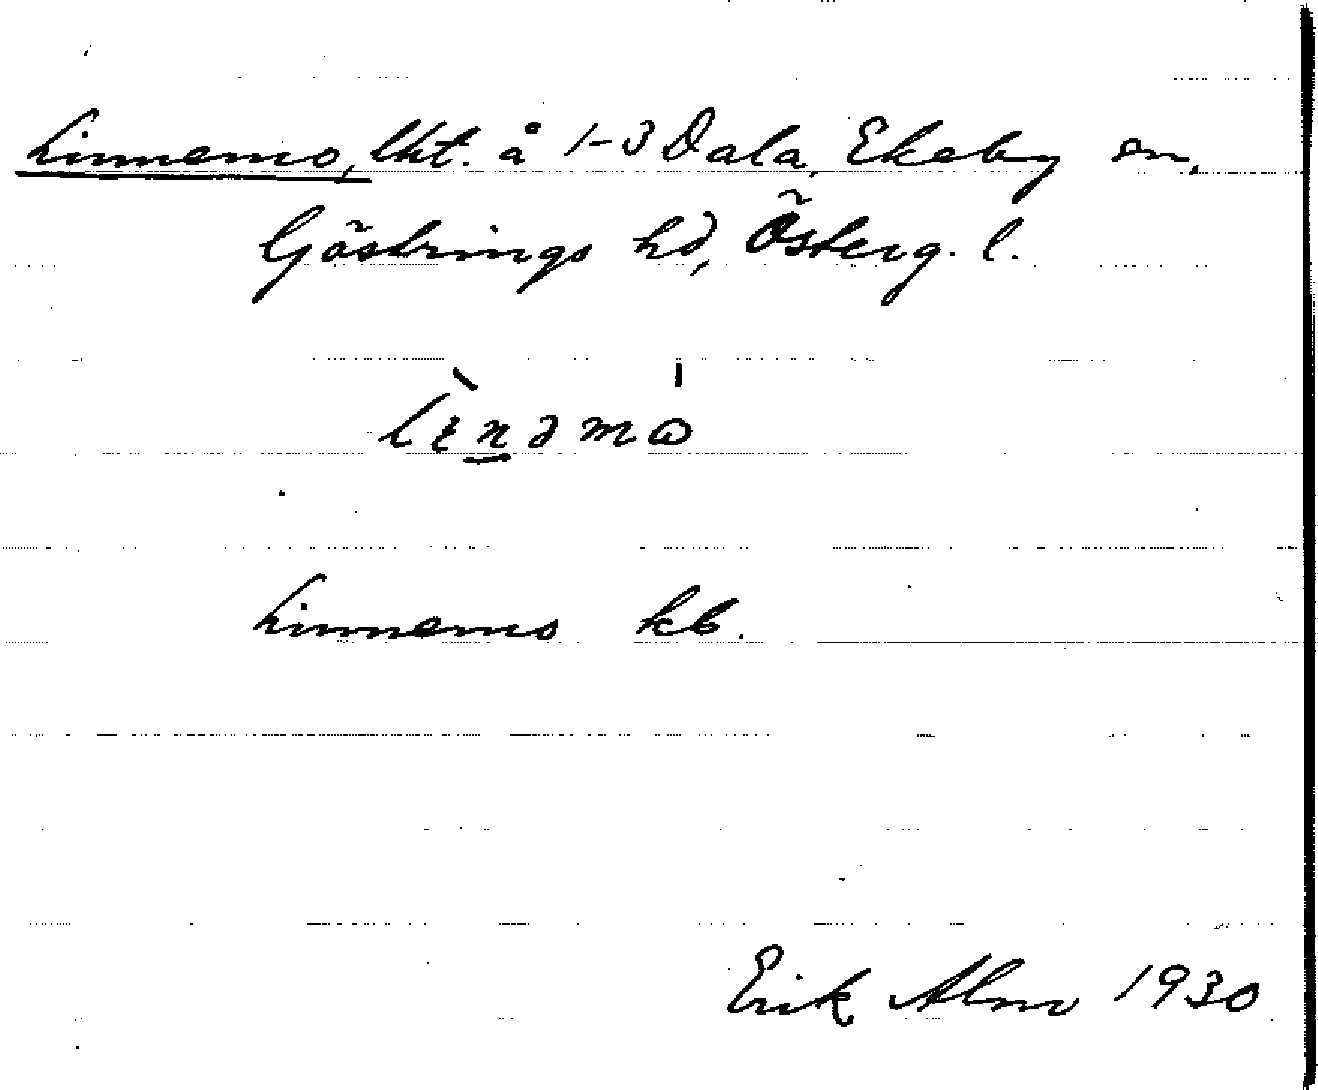 Linnemo, lht. å 1-3 Dala, Ekeby sn,
Göstrings hd, Österg. l.
lìnəmω̍
Linnemo kb.
Erik Alm 1930